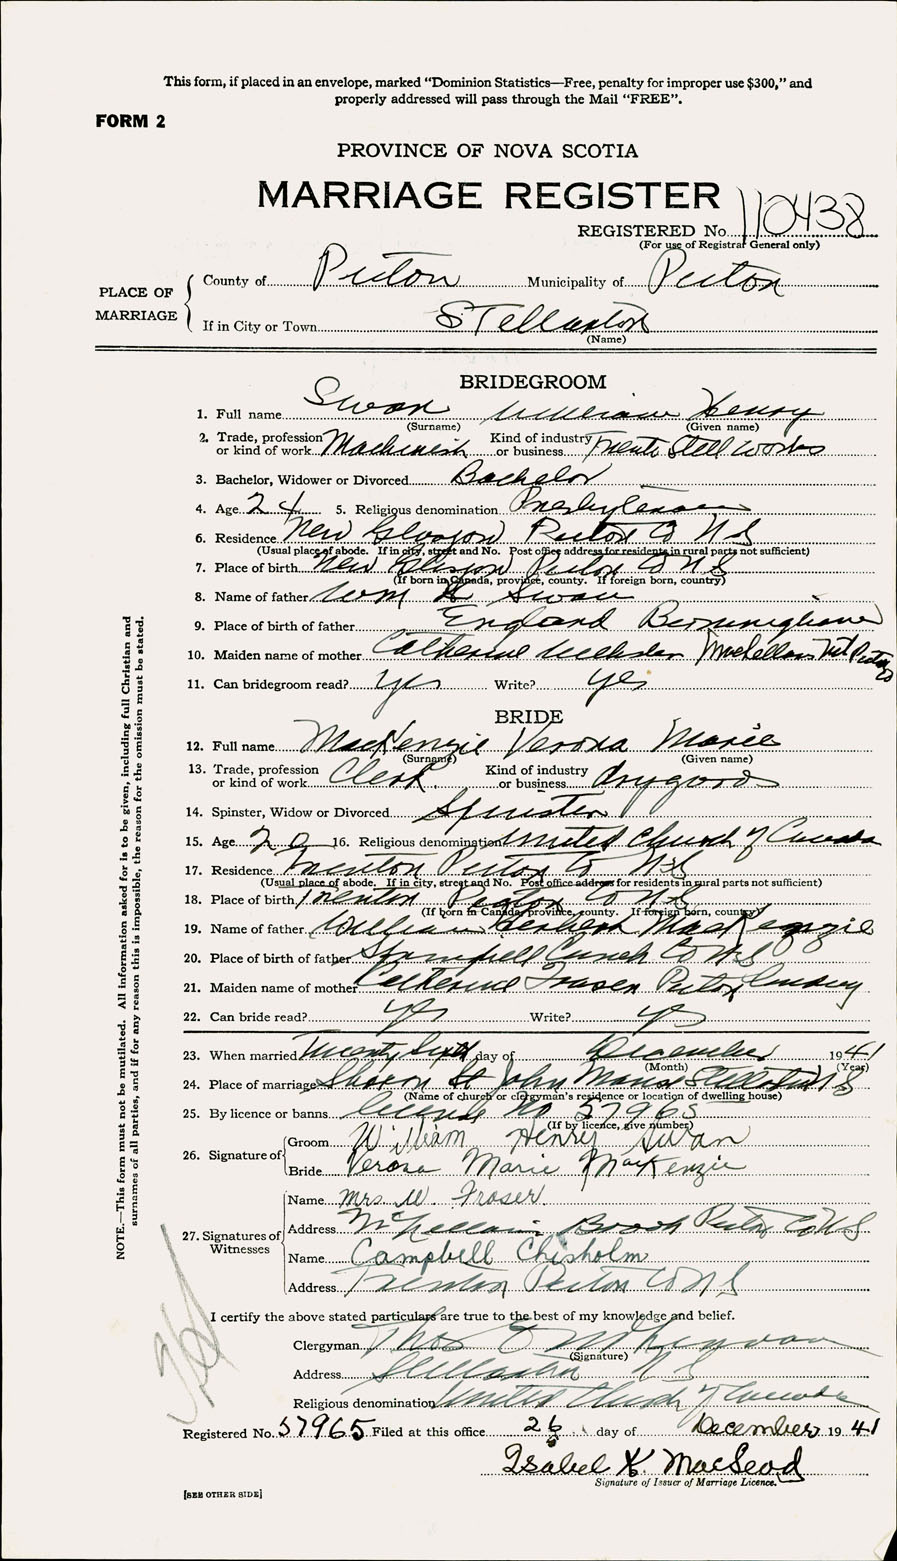 This form, if placed in an envelope, marked “Dominion Statistics—Free, penalty for improper use $300,” and
properly addressed will pass through the Mail “FREE”.
FORM 2
PROVINCE OF NOVA SCOTIA
MARRIAGE REGISTER
REGISTERED No. 110438
(For use of Registrar General only)
PLACE OF MARRIAGE
County of Pictou Municipality of Pictou
If in City or Town Stellarton
(Name)
BRIDEGROOM
1. Full name Swan William Henry
(Surname) (Given name)
2. Trade, profession or kind of work Machinist Kind of industry or business Trenton Steel Works
3. Bachelor, Widower or Divorced Bachelor
4. Age 24 5. Religious denomination Presbyterian
6. Residence New Glasgow Pictou Co NS
(Usual place of abode. If in city, street and No. Post office address for residents in rural parts not sufficient)
7. Place of birth New Glasgow Pictou Co NS
(If born in Canada, province, county. If foreign born, country)
8. Name of father Wm H Swan
9. Place of birth of father England Birmingham
10. Maiden name of mother Catherine Pictou Co
11. Can bridegroom read? yes Write? yes
BRIDE
12. Full name MacKenzie Verona Marie
(Surname) (Given name)
13. Trade, profession or kind of work Clerk. Kind of industry or business drygoods
14. Spinster, Widow or Divorced Spinster
15. Age 20 16. Religious denomination United Church of Canada
17. Residence Trenton Pictou Co NS
(Usual place of abode. If in city, street and No. Post office address for residents in rural parts not sufficient)
18. Place of birth Trenton Pictou Co NS
(If born in Canada, province, county. If foreign born, country)
19. Name of father William MacKenzie
20. Place of birth of father Co NS
21. Maiden name of mother Catherine Fraser Pictou County
22. Can bride read? yes Write? yes
23. When married Twenty Sixth day of December 1941
(Month) (Year)
24. Place of marriage Sharon St John Manse Stellarton NS
(Name of church or clergyman's residence or location of dwelling house)
25. By licence or banns license No 57965
(If by licence, give number)
26. Signature of
Groom William Henry Swan
Bride Verona Marie MacKenzie
27. Signatures of Witnesses
Name Mrs W. Fraser
Address McLellan's Brook Pictou Co NS
Name Campbell Chisholm
Address Trenton Pictou Co NS
I certify the above stated particulars are true to the best of my knowledge and belief.
Clergyman Thos
(Signature)
Address Stellarton NS
Religious denomination United Church of Canada
Registered No. 57965 Filed at this office 26 day of December 1941
Isabel K. MacLeod
Signature of Issuer of Marriage Licence.
[SEE OTHER SIDE]
NOTE.—This form must not be mutilated. All information asked for is to be given, including full Christian and
surnames of all parties, and if for any reason this is impossible, the reason for the omission must be stated.